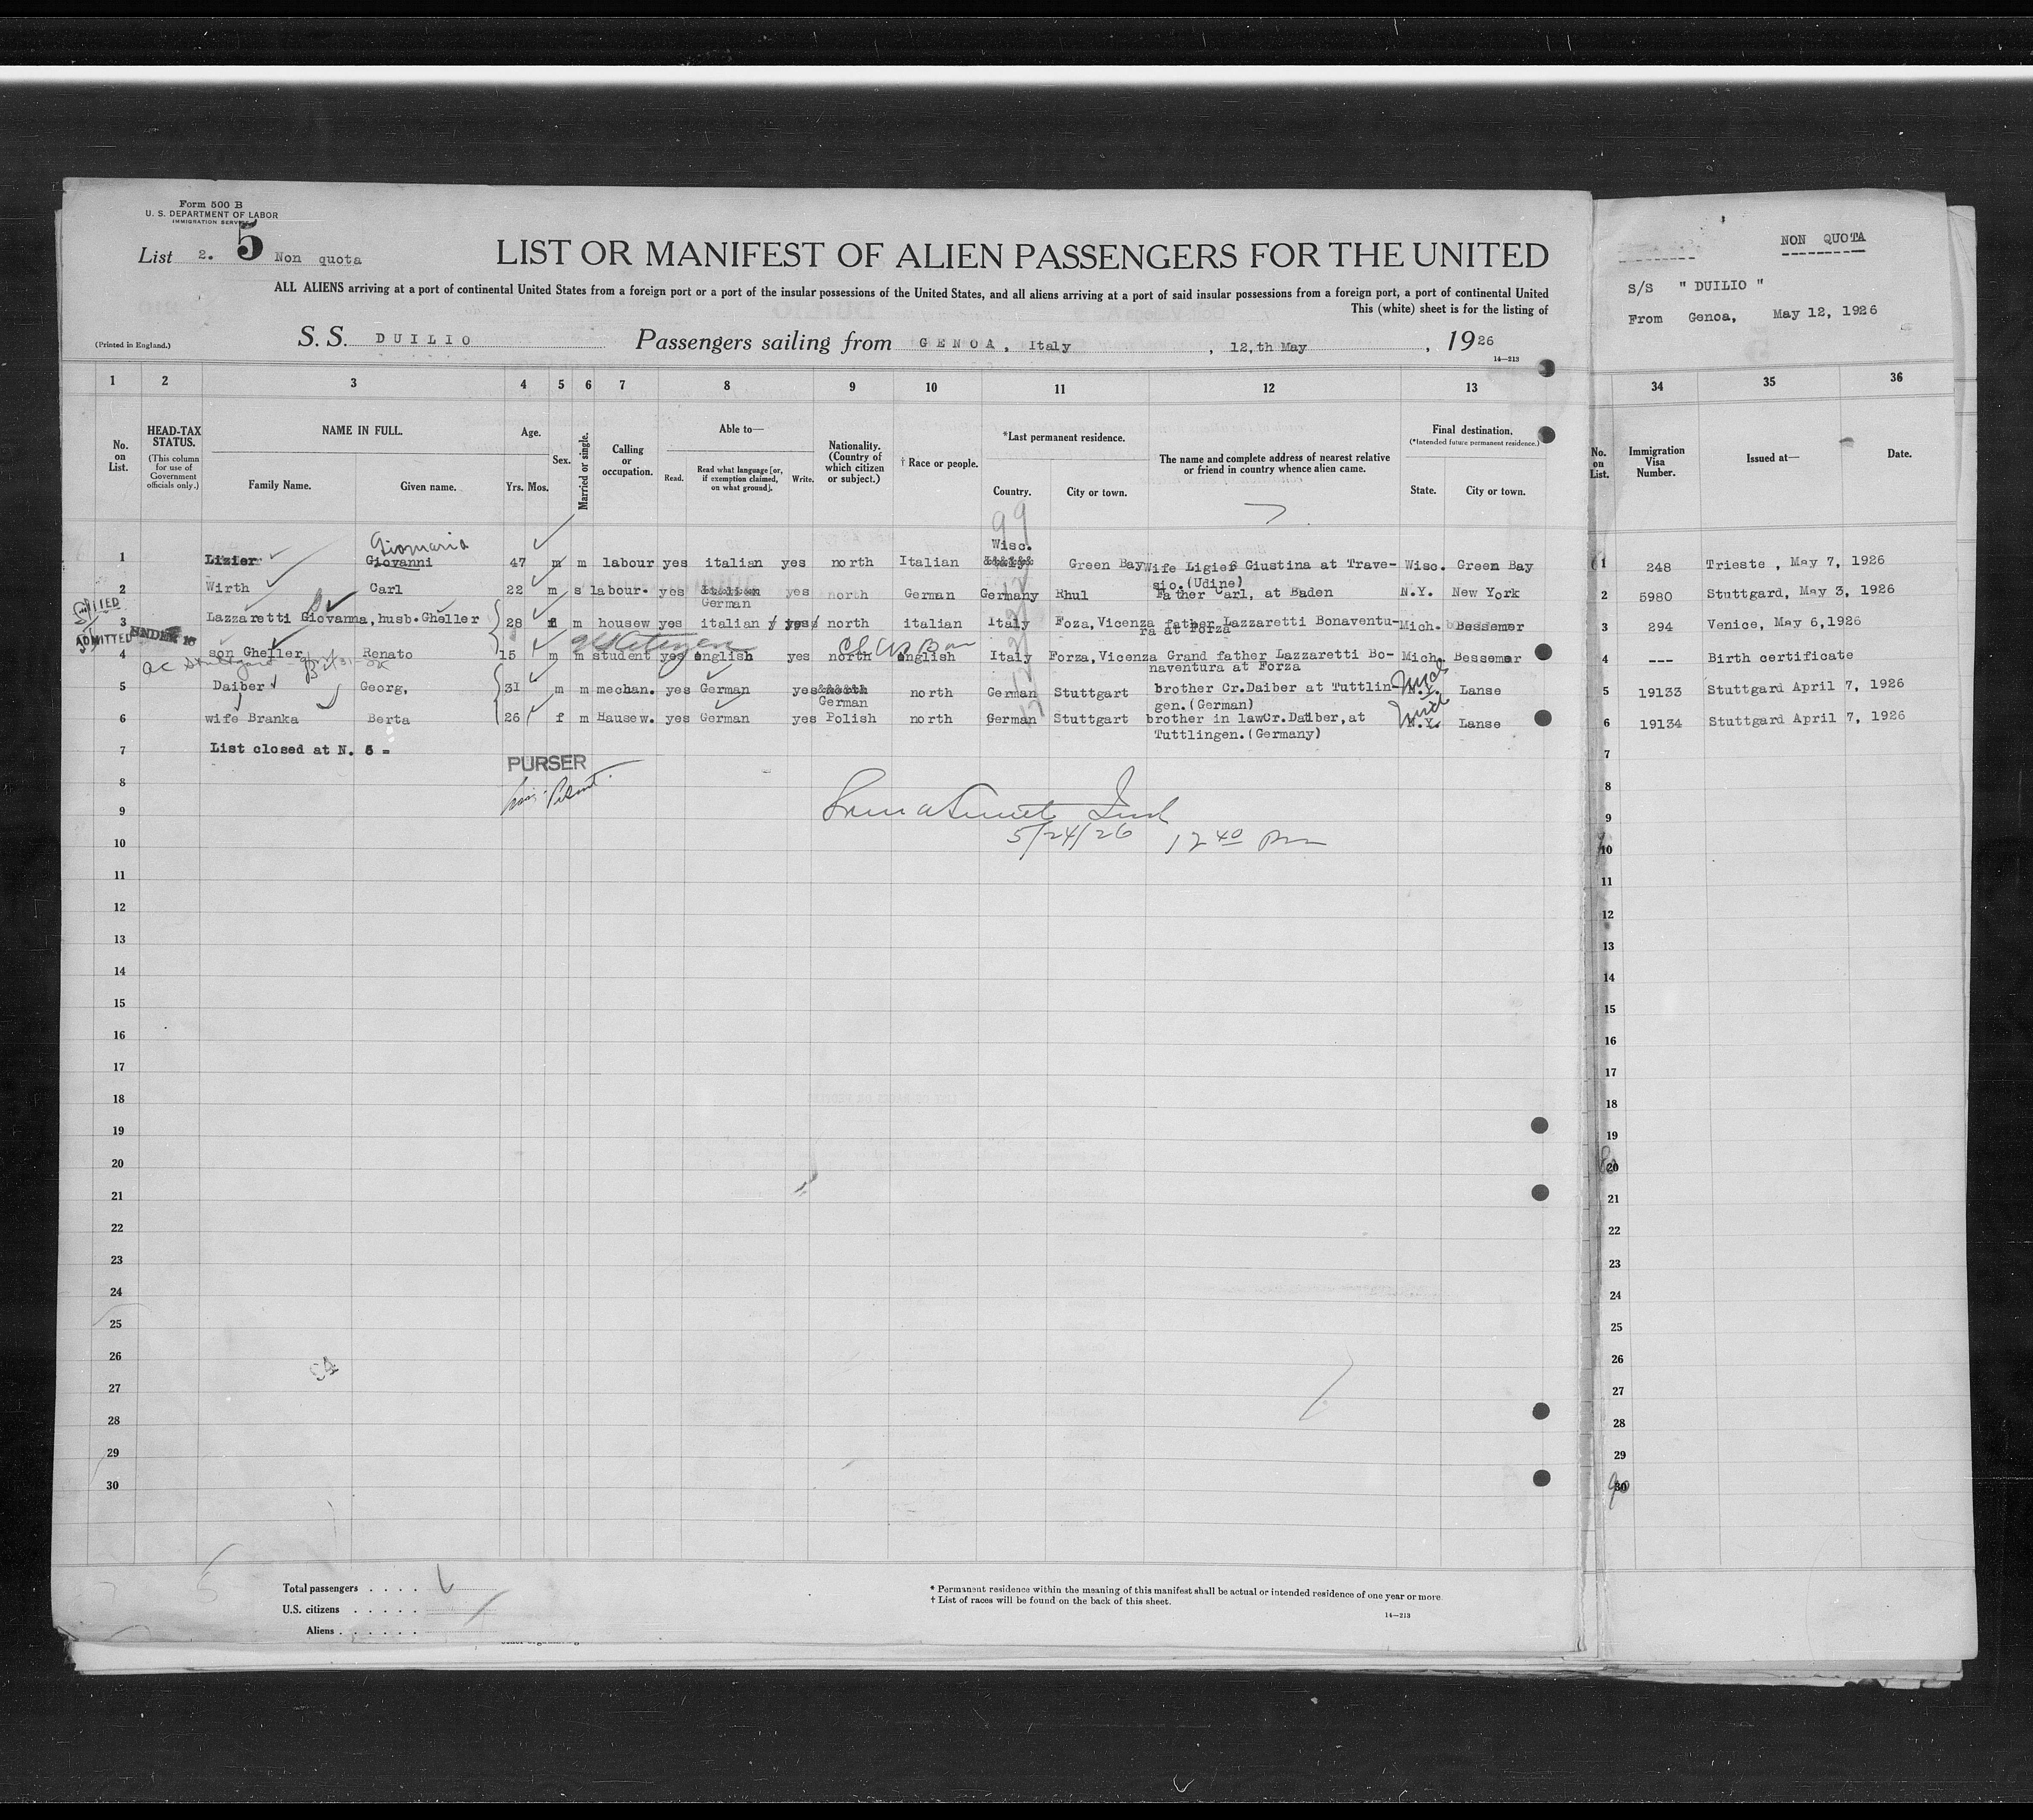 Form 500 B
U. S. DEPARTMENT OF LABOR
IMMIGRATION SERVICE
List 2. 5 Non quota
LIST OR MANIFEST OF ALIEN PASSENGERS FOR THE UNITED
ALL ALIENS arriving at a port of continental United States from a foreign port or a port of the insular possessions of the United States, and all aliens arriving at a port of said insular possessions from a foreign port, a port of continental United
This (white) sheet is for the listing of
(Printed in England.)
S. S. DUILIO Passengers sailing from GENOA, Italy, 12,th May, 1926
14—213
NON QUOTA
S/S " DUILIO "
From Genoa, May 12, 1926
1 2 3 4 5 6 7 8 9 10 11 12 13 34 35 36
No. on List.
HEAD-TAX STATUS.
(This column for use of Government officials only.)
NAME IN FULL.
Family Name. Given name.
Age.
Yrs. Mos.
Sex.
Married or single.
Calling or occupation.
Able to—
Read. Read what language [or, if exemption claimed, on what ground]. Write.
Nationality. (Country of which citizen or subject.)
† Race or people.
*Last permanent residence.
Country. City or town.
The name and complete address of nearest relative or friend in country whence alien came.
Final destination.
(*Intended future permanent residence.)
State. City or town.
No. on List.
Immigration Visa Number.
Issued at—
Date.
99
Giomaria
Wisc.
1 Lizier Giovanni 47 m m labour yes italian yes north Italian Green Bay Wife Ligier Giustina at Trave- Wisc. Green Bay 1 248 Trieste , May 7, 1926
sio.(Udine)
2 Wirth Carl 22 m s labour. yes italian yes north German Germany Rhul Father Carl, at Baden N.Y. New York 2 5980 Stuttgard, May 3, 1926
German
3 Lazzaretti Giovanna, husb. Gheller 28 f m housew yes italian yes north italian Italy Foza, Vicenza father Lazzaretti Bonaventu- Mich. Bessemer 3 294 Venice, May 6,1926
ra at Forza
ADMITTED UNDER 16
4 son Gheller Renato 15 m m student yes english yes north english Italy Forza, Vicenza Grand father Lazzaretti Bo- Mich. Bessemer 4 --- Birth certificate
naventura at Forza
5 Daiber Georg, 31 m m mechan. yes German yes north north German Stuttgart brother Cr.Daiber at Tuttlin- N.Y. Mich Lanse 5 19133 Stuttgard April 7, 1926
German gen.(German)
6 wife Branka Berta 26 f m Hausew. yes German yes Polish north German Stuttgart brother in law Cr. Daiber, at N.Y. Mich Lanse 6 19134 Stuttgard April 7, 1926
Tuttlingen.(Germany)
7 List closed at N. 6 = 7
PURSER
8 8
9 9
5/24/26 12 40 Pm
10 10
11 11
12 12
13 13
14 14
15 15
16 16
17 17
18 18
19 19
20 20
21 21
22 22
23 23
24 24
25 25
26 26
27 27
28 28
29 29
30 30
Total passengers . . . .
U.S. citizens . . . . .
Aliens . . . . . .
* Permanent residence within the meaning of this manifest shall be actual or intended residence of one year or more.
† List of races will be found on the back of this sheet.
14—213